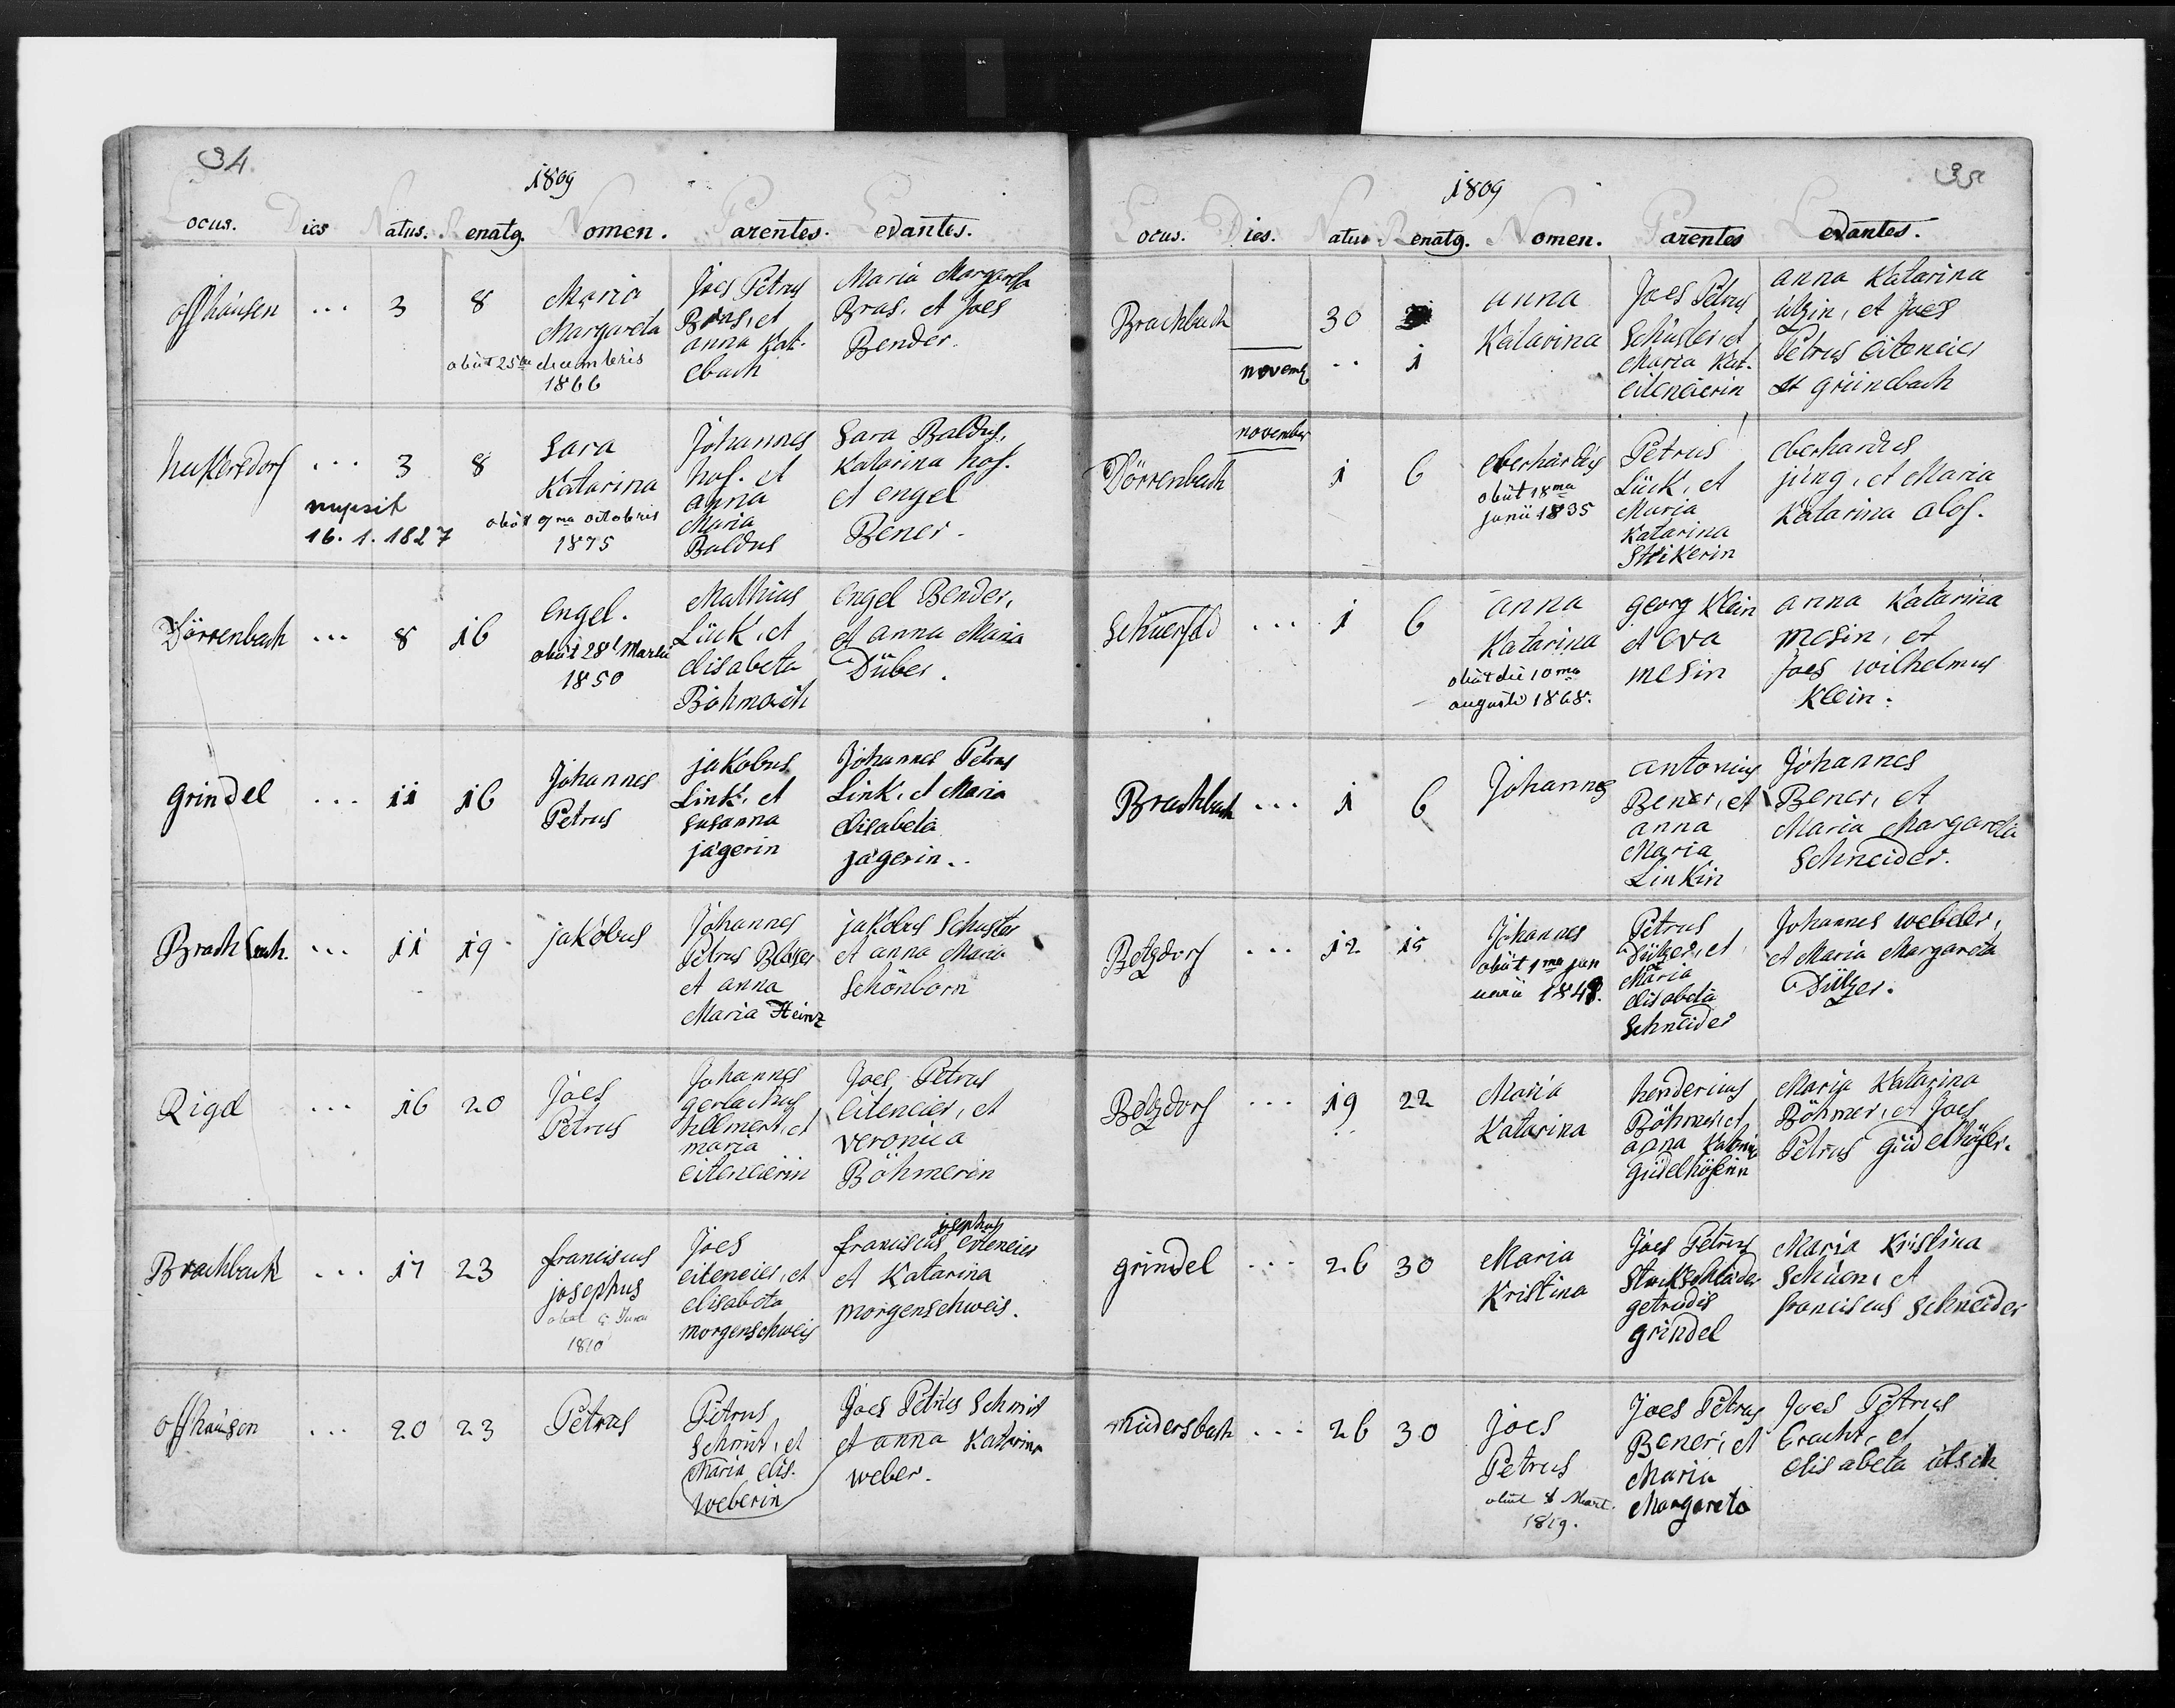 34.
1809
Locus. Dies Natus. Renatg. Nomen. Parentes. Levantes.
offhausen ... 3 8 Maria Margareta
obiit 25ta decembris 1866
Joes Petrus
Bras, et
anna Kat.
Ebach
Maria Margareta
Bras, et Joes
Bender.
huKersdorf ... 3 8
nupsit
16. 1. 1827
Sara
Katarina
obiit 9ma octobris
1875
Johannes
hof. et
anna
Maria
Baldus
Sara Baldus,
Katarina hof.
et engel
Bener.
Dörrenbach ... 8 16
Engel.
obiit 28t Martii
1850
Mathias
Lück, et
elisabeta
Böhmerich
Engel Bender,
et anna Maria
Düber.
grindel ... 11 16
Johannes
Petrus
jaKobus
Link, et
susanna
jägerin
Johannes Petrus
Link, et Maria
elisabeta
jägerin..
Brachbach. ... 11 19
jaKobus
Johannes
Petrus Bläser
et anna
Maria Heinz
jaKobus Schuster
et anna Maria
Schönborn
Rigel ... 16 20
Joes
Petrus
Johannes
gerlachus
helmert, et
maria
eiteneierin
Joes Petrus
Eiteneier, et
veronica
Böhmerin
Brachbach ... 17 23
franciscus
josephus
1810
Joes
eiteneier, et
elisabeta
morgenschweis
josephus
franciscus eiteneier
et Katarina
morgenschweis.
offhausen ... 20 23
Petrus
Petrus
Schmit, et
Maria elis.
weberin
Joes Petrus Schmit
et anna Katarina
weber.
35
1809
Locus. Dies. Natus Renatg. Nomen. Parentes Levantes.
Brachbach 30
novemb .. 1
anna
Katarina
Joes Petrus
Schuster, et
Maria Kat.
eiteneierin
anna Katarina
Joes
Petrus Eiteneier
et grünebach
november
Dörrenbach 1 6
eberhardus
obiit 18ma
junii 1835
Petrus
Lück, et
Maria
Katarina
StriKerin
eberhardus
jung, et Maria
Katarina alof.
Schuerfeld ... 1 6
anna
Katarina
obiit die 10ma
augusti 1868.
georg Klein
et eva
mesin
anna Katarina
mesin, et
Joes wilhelmus
Klein.
Brachbach ... 1 6
Johannes
antonius
Bener, et
anna
Maria
LinKin
Johannes
Bener, et
Maria Margareta
Schneider.
Betzdorf ... 12 15
Johannes
obiit 1ma jan
uarii 1848.
Petrus
Dützer, et
Maria
elisabeta
Schneider
Johannes webeler,
et Maria Margareta
Dützer.
Betzdorf ... 19 22
Maria
Katarina
hendericus
Böhmer, et
anna Katarina
güdelhöferin
Maria Katarina
Böhmer, et Joes
Petrus güdelhöfer.
grindel ... 26 30
Maria
Kristina
Joes Petrus
StockSchläder
getrudis
grindel
Maria Kristina
Schüen, et
franciscus Schneider
mudersbach ... 26 30
Joes
Petrus
obiit 8 Mart.
1819.
Joes Petrus
Bener, et
Maria
Margareta
Joes Petrus
Bracht, et
elisabeta ütsch